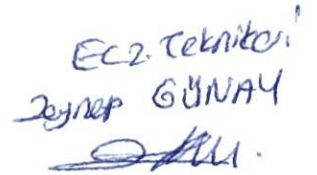 Ecz. Teknikeri
Zeynep GÜNAY